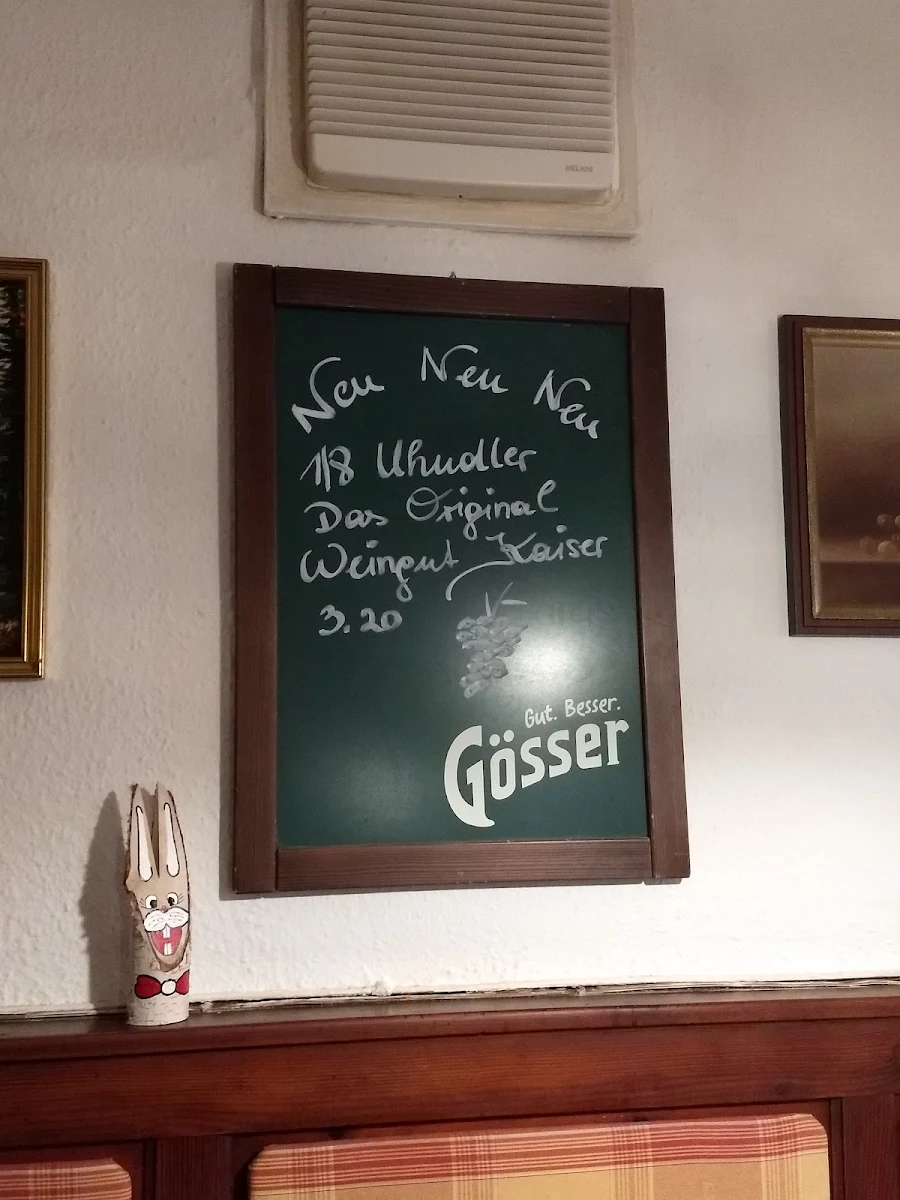 HELIOS
Neu Neu Neu
1/8 Uhudler
Das Original
Weingut Kaiser
3.20
Gut. Besser.
Gösser